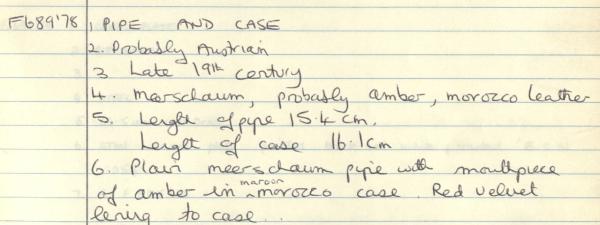 F689'78 1. PIPE AND CASE
2. Probably Austrian
3 Late 19th century
4. meerschaum, probably amber, morocco leather
5. Length of pipe 15.4 cm.
Length of case 16.1cm
6. Plain meerschaum pipe with mouthpiece
of amber in maroon morocco case. Red velvet
lining to case.